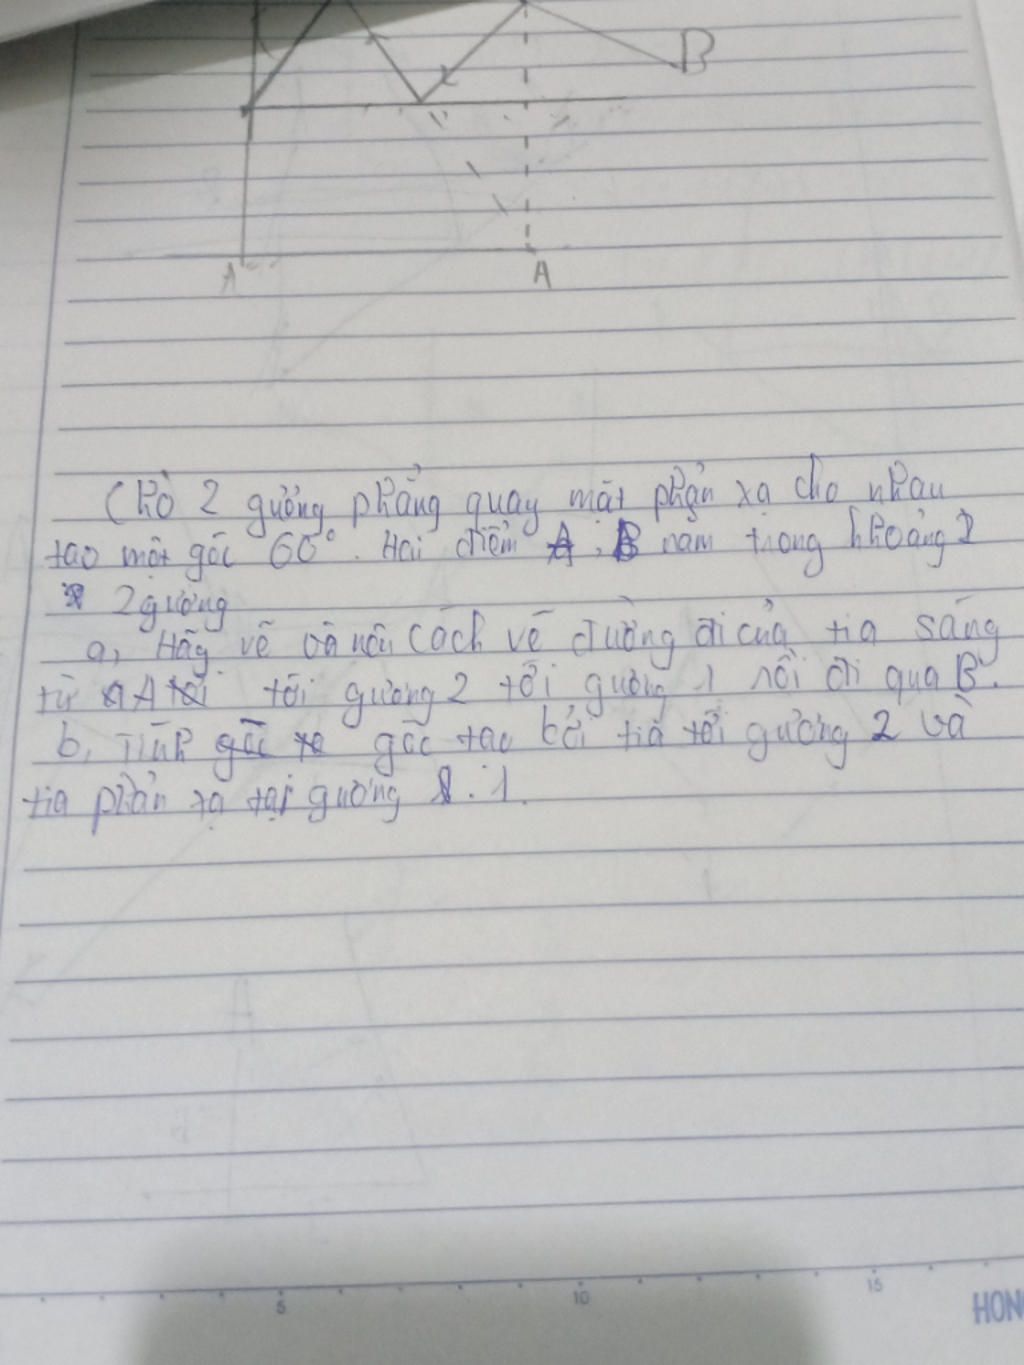 B
A
A
Chò 2 gưởng phẳng quay mặt phản xạ cho nhau
tao một góc 60°. Hai điểm A, B nằm trong khoảng 2
2 gưởng
a, Hãy vẽ và nêu cách vẽ đường đi của tia sáng
từ A tới gương 2 tới gưởng 1 rồi đi qua B.
b, Tính góc tạo bởi tia tới gưởng 2 và
tia phản xạ tại gương 1.
5
10
15
HON